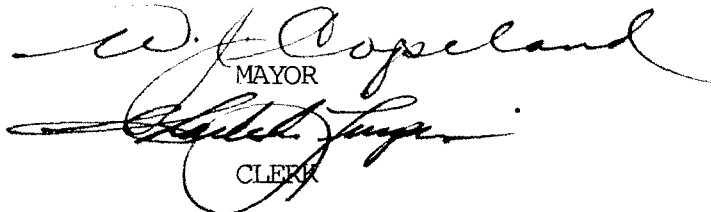 W. J. Copeland
MAYOR
CLERK